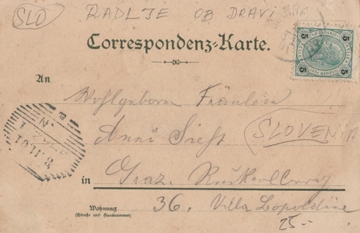 SLO RADLJE OB DRAVI
Correspondenz-Karte.
5 5
5 5
An
Wohlgeboren Fräulein
Anni
SLOVENI
in Graz.
Wohnung
(Straße und Hausnummer)
36. Villa Leopoldine
25.-